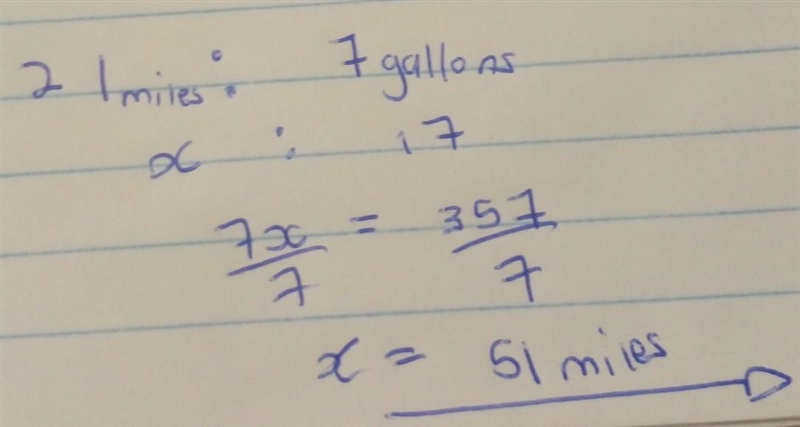 21 miles : 7 gallons
x : 17
7x/7 = 357/7
x = 51 miles